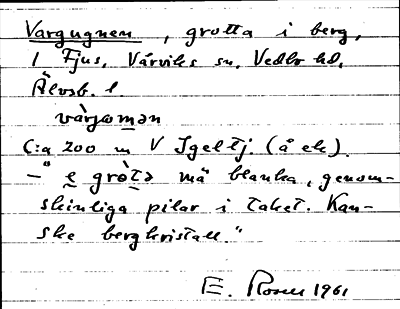 Vargugnen, grotta i berg,
1 Fjus, Vårviks sn, Vedbo hd,
Älvsb. l.
C:a 200 m V Igeltj. (å ek).
–"e gròtə mä blanka, genom-
skinliga pilar i taket. Kan-
ske bergkristall."
E. Rosen 1961